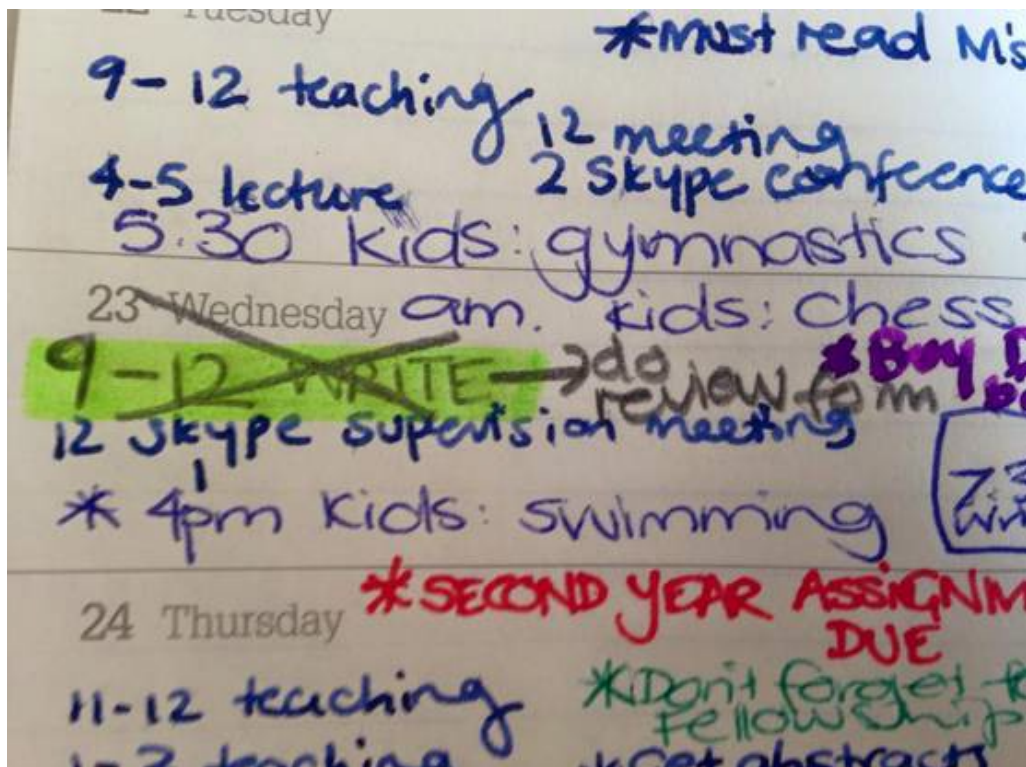 Tuesday
*Must read M's
9-12 teaching
12 meeting
4-5 lecture
2 Skype confeence
5.30 kids: gymnastics
23 Wednesday am. kids: chess
9-12 WRITE → do
review form
*Buy
12 skype supervision meeting
* 4pm kids: swimming
24 Thursday
*SECOND YEAR ASSIGNM
DUE
11-12 teaching
*Don't forget
Fellowship
teaching
*Get abstracts